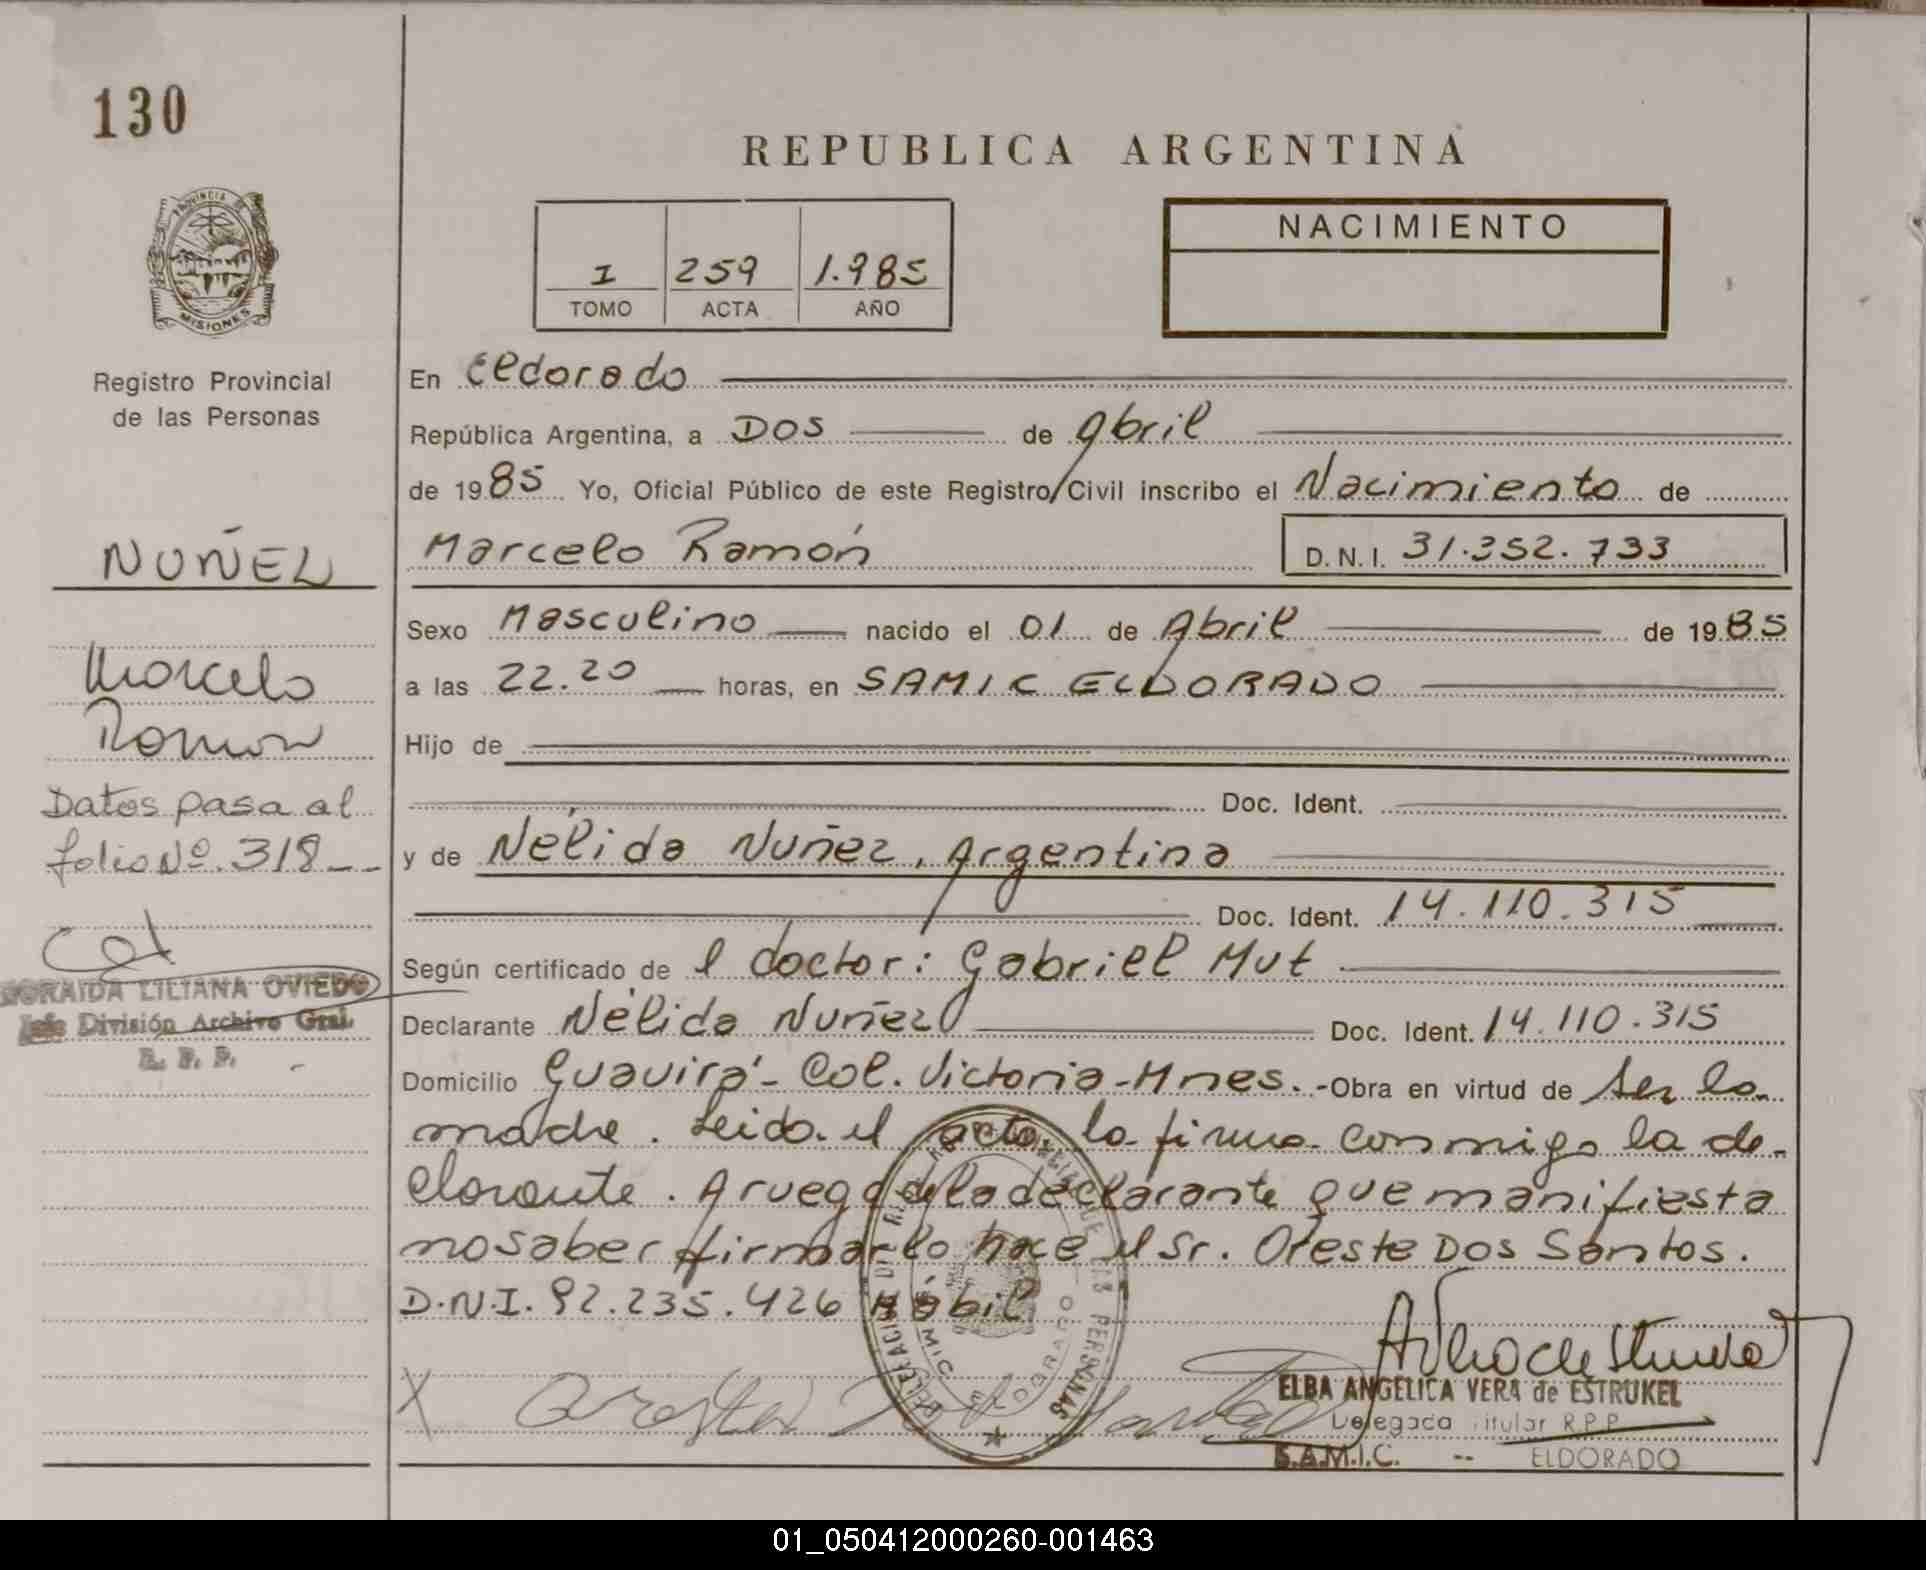 130
REPUBLICA ARGENTINA
PROVINCIA DE
MISIONES
Registro Provincial
de las Personas
I 259 1.985
TOMO ACTA AÑO
NACIMIENTO
En Eldorado
República Argentina, a DOS de Abril
de 1985 Yo, Oficial Público de este Registro Civil inscribo el Nacimiento de
NUÑEZ
Marcelo Ramón D.N.I. 31.352.733
Sexo Masculino nacido el 01 de Abril de 1985
Marcelo
a las 22.20 horas, en SAMIC ELDORADO
Ramon
Hijo de
Datos pasa al
Doc. Ident.
folio Nº 318
y de Nélida Nuñez, Argentina
Doc. Ident. 14.110.315
Según certificado de l doctor: Gabriel Mut
ZORAIDA LILIANA OVIEDO
Jefe División Archivo Gral.
R. P. P.
Declarante Nélida Nuñez Doc. Ident. 14.110.315
Domicilio Guavirá - Col. Victoria - Mnes. - Obra en virtud de ser la
madre. Leida el acta, la firma conmigo la de-
clarante. A ruego de la declarante que manifiesta
no saber firmar lo hace el Sr. Oreste Dos Santos.
D.N.I. 92.235.426 Hábil
ELBA ANGELICA VERA de ESTRUKEL
Delegada Titular R.P.P.
S.A.M.I.C. -- ELDORADO
01_050412000260-001463